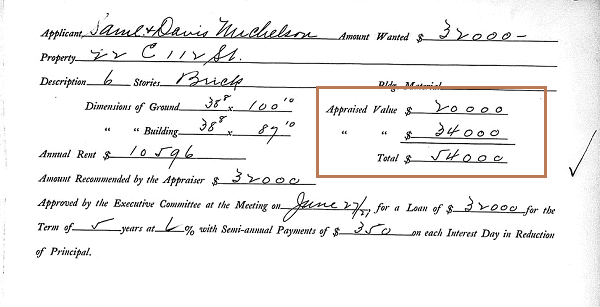 Applicant, Saml & Davis Michelson Amount Wanted $ 32000-
Property 22 E 112 St.
Description 6 Stories Brick Bldg Material
Dimensions of Ground 38⁸ x 100¹⁰
" " Building 38⁸ x 87¹⁰
Appraised Value $ 20000
" " $ 34000
Annual Rent $ 10596
Total $ 54000
Amount Recommended by the Appraiser $ 32000
Approved by the Executive Committee at the Meeting on June 27/21 for a Loan of $ 32000 for the
Term of 5 years at 6 % with Semi-annual Payments of $ 350 on each Interest Day in Reduction
of Principal.